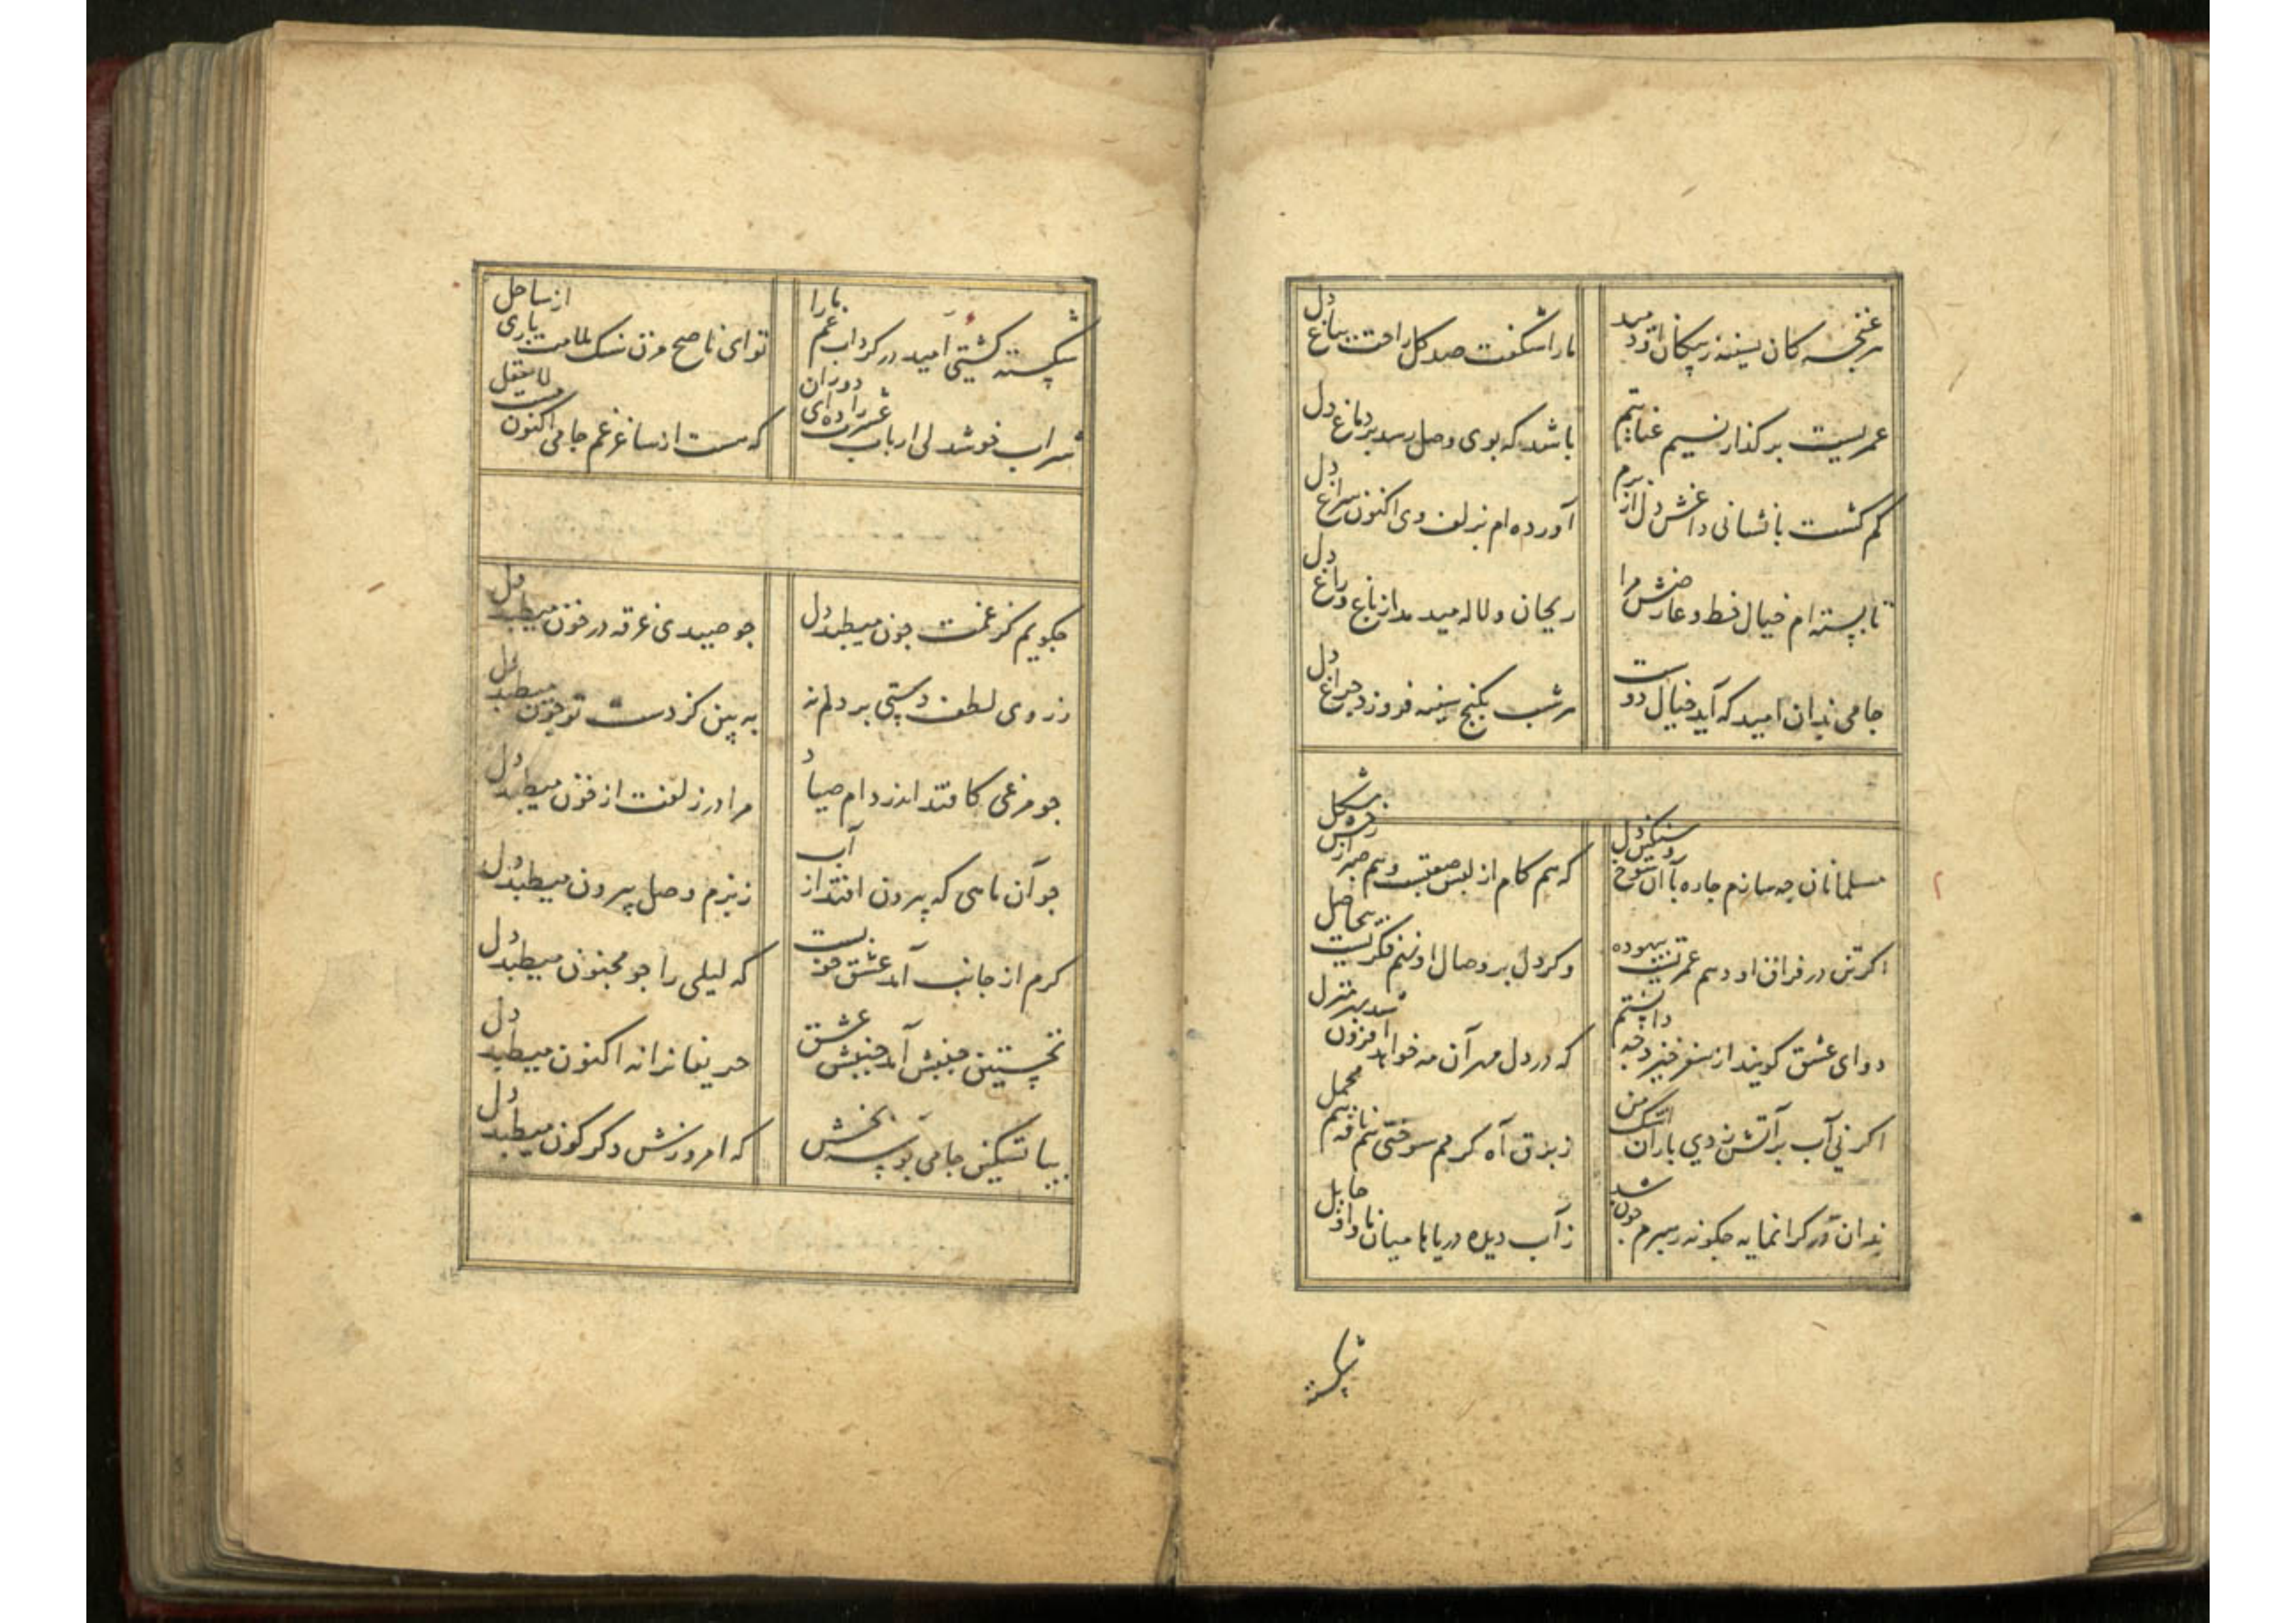 هر غنچه کان بسینه ز پیکان او دمید
ما را شکفت صد کل راحت بباغ دل
عمریست بر کذار نسیم عنایتیم
باشد که بوی وصل رسد بر دماغ دل
کم کشت با نشانی داغش دل از برم
آورده ام بزلف وی اکنون سراغ دل
تا بسته ام خیال خط و عارضش مرا
ریحان و لاله میدمد از باغ و راغ دل
جامی بدان امید که آید خیال دوست
هر شب بکنج سینه فروزد چراغ دل
مسلمانان چه سازم چاره با آن شوخ سنکین دل
که هم کام از لبش صعبست و هم صبر از رخش مشکل
اکر تن در فراق او دهم عمریست بیهوده
وکر دل بر وصال او نهم فکریست بیحاصل
دوای عشق کویند از سفر خیزد چه دانستم
که در دل مهر آن مه خواهد افزون شد بهر منزل
اکر نی آب بر آتش زدی باران اشک من
ز برق آه کرمم سوختی هم ناقه هم محمل
بدان در کرانمایه چکونه ره برم چون شد
ز آب دیده دریاها میان ما و او حایل
شکسته
شکسته کشتی امید در کرداب غم ما را
تو ای ناصح مزن سنک ملامت باری از ساحل
شراب خوشدلی ارباب عشرت را ده ای دوران
که هست از ساغر غم جامی اکنون مست لایعقل
چکویم کز غمت چون میطبد دل
چو صیدی غرقه در خون میطبد دل
ز روی لطف دستی بر دلم نه
به بین کز دست تو چون میطبد دل
چو مرغی کافتد اندر دام صیاد
مرا در زلفت از فزون میطبد دل
چو آن ماهی که بیرون افتد از آب
ز بزم وصل بیرون میطبد دل
کرم از جانب آمد عشق خونست
که لیلی را چو مجنون میطبد دل
نخستین جنبش آمد جنبش عشق
حریفانرا نه اکنون میطبد دل
بیا تسکین جامی بوسه بخش
که امروزش دکرکون میطبد دل